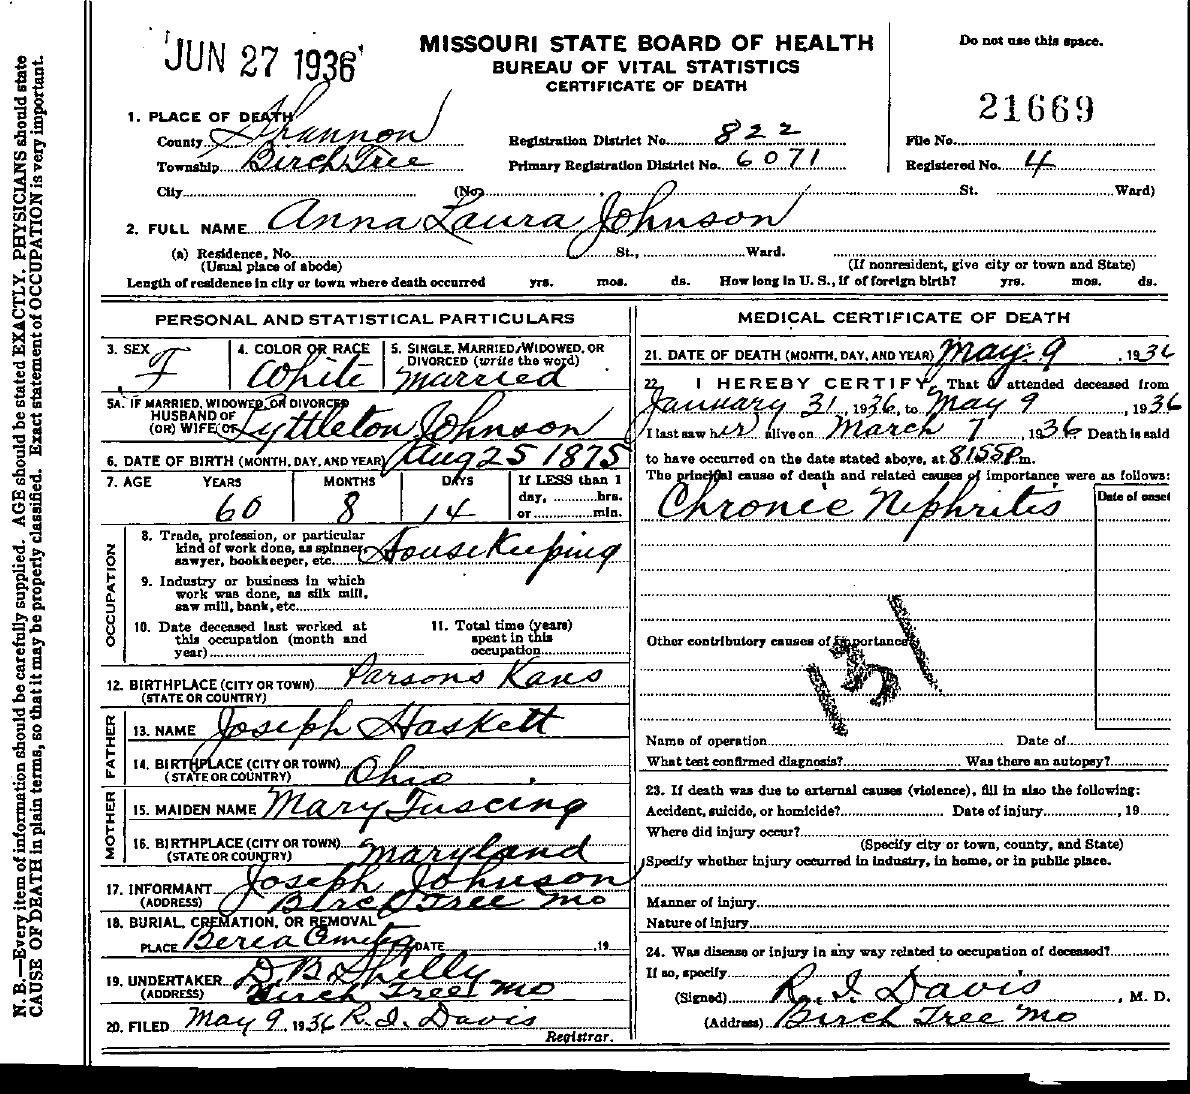 N. B.—Every item of information should be carefully supplied. AGE should be stated EXACTLY. PHYSICIANS should state
CAUSE OF DEATH in plain terms, so that it may be properly classified. Exact statement of OCCUPATION is very important.
JUN 27 1936
MISSOURI STATE BOARD OF HEALTH
BUREAU OF VITAL STATISTICS
CERTIFICATE OF DEATH
Do not use this space.
21669
1. PLACE OF DEATH
County Shannon Registration District No. 822 File No.
Township Birch Tree Primary Registration District No. 6071 Registered No. 4
City (No. St. Ward)
2. FULL NAME Anna Laura Johnson
(a) Residence, No. St., Ward.
(Usual place of abode) (If nonresident, give city or town and State)
Length of residence in city or town where death occurred yrs. mos. ds. How long in U. S., if of foreign birth? yrs. mos. ds.
PERSONAL AND STATISTICAL PARTICULARS
3. SEX F
4. COLOR OR RACE White
5. SINGLE, MARRIED, WIDOWED, OR
DIVORCED (write the word)
Married
5A. IF MARRIED, WIDOWED, OR DIVORCED
HUSBAND OF
(OR) WIFE OF Lyttleton Johnson
6. DATE OF BIRTH (MONTH, DAY, AND YEAR) Aug 25 1875
7. AGE YEARS MONTHS DAYS If LESS than 1
day, hrs.
60 8 14 or min.
OCCUPATION
8. Trade, profession, or particular
kind of work done, as spinner,
sawyer, bookkeeper, etc. HouseKeeping
9. Industry or business in which
work was done, as silk mill,
saw mill, bank, etc.
10. Date deceased last worked at
this occupation (month and
year)
11. Total time (years)
spent in this
occupation
12. BIRTHPLACE (CITY OR TOWN) Parsons Kans
(STATE OR COUNTRY)
FATHER
13. NAME Joseph Haskett
14. BIRTHPLACE (CITY OR TOWN) Ohio
(STATE OR COUNTRY)
MOTHER
15. MAIDEN NAME Mary
16. BIRTHPLACE (CITY OR TOWN) Maryland
(STATE OR COUNTRY)
17. INFORMANT Joseph Johnson
(ADDRESS) Birch Tree Mo
18. BURIAL, CREMATION, OR REMOVAL
PLACE Berea Cemetery DATE 19
19. UNDERTAKER D. B. Shelly
(ADDRESS) Birch Tree Mo
20. FILED May 9, 1936 R. I. Davis
Registrar.
MEDICAL CERTIFICATE OF DEATH
21. DATE OF DEATH (MONTH, DAY, AND YEAR) May 9, 1936
22. I HEREBY CERTIFY, That I attended deceased from
January 31, 1936, to May 9, 1936
I last saw her alive on March 7, 1936 Death is said
to have occurred on the date stated above, at 8:55P m.
The principal cause of death and related causes of importance were as follows:
Chronic Nephritis
Date of onset
Other contributory causes of importance:
131
Name of operation Date of
What test confirmed diagnosis? Was there an autopsy?
23. If death was due to external causes (violence), fill in also the following:
Accident, suicide, or homicide? Date of injury , 19
Where did injury occur?
(Specify city or town, county, and State)
Specify whether injury occurred in industry, in home, or in public place.
Manner of injury
Nature of injury
24. Was disease or injury in any way related to occupation of deceased?
If so, specify
(Signed) R. I. Davis, M. D.
(Address) Birch Tree Mo